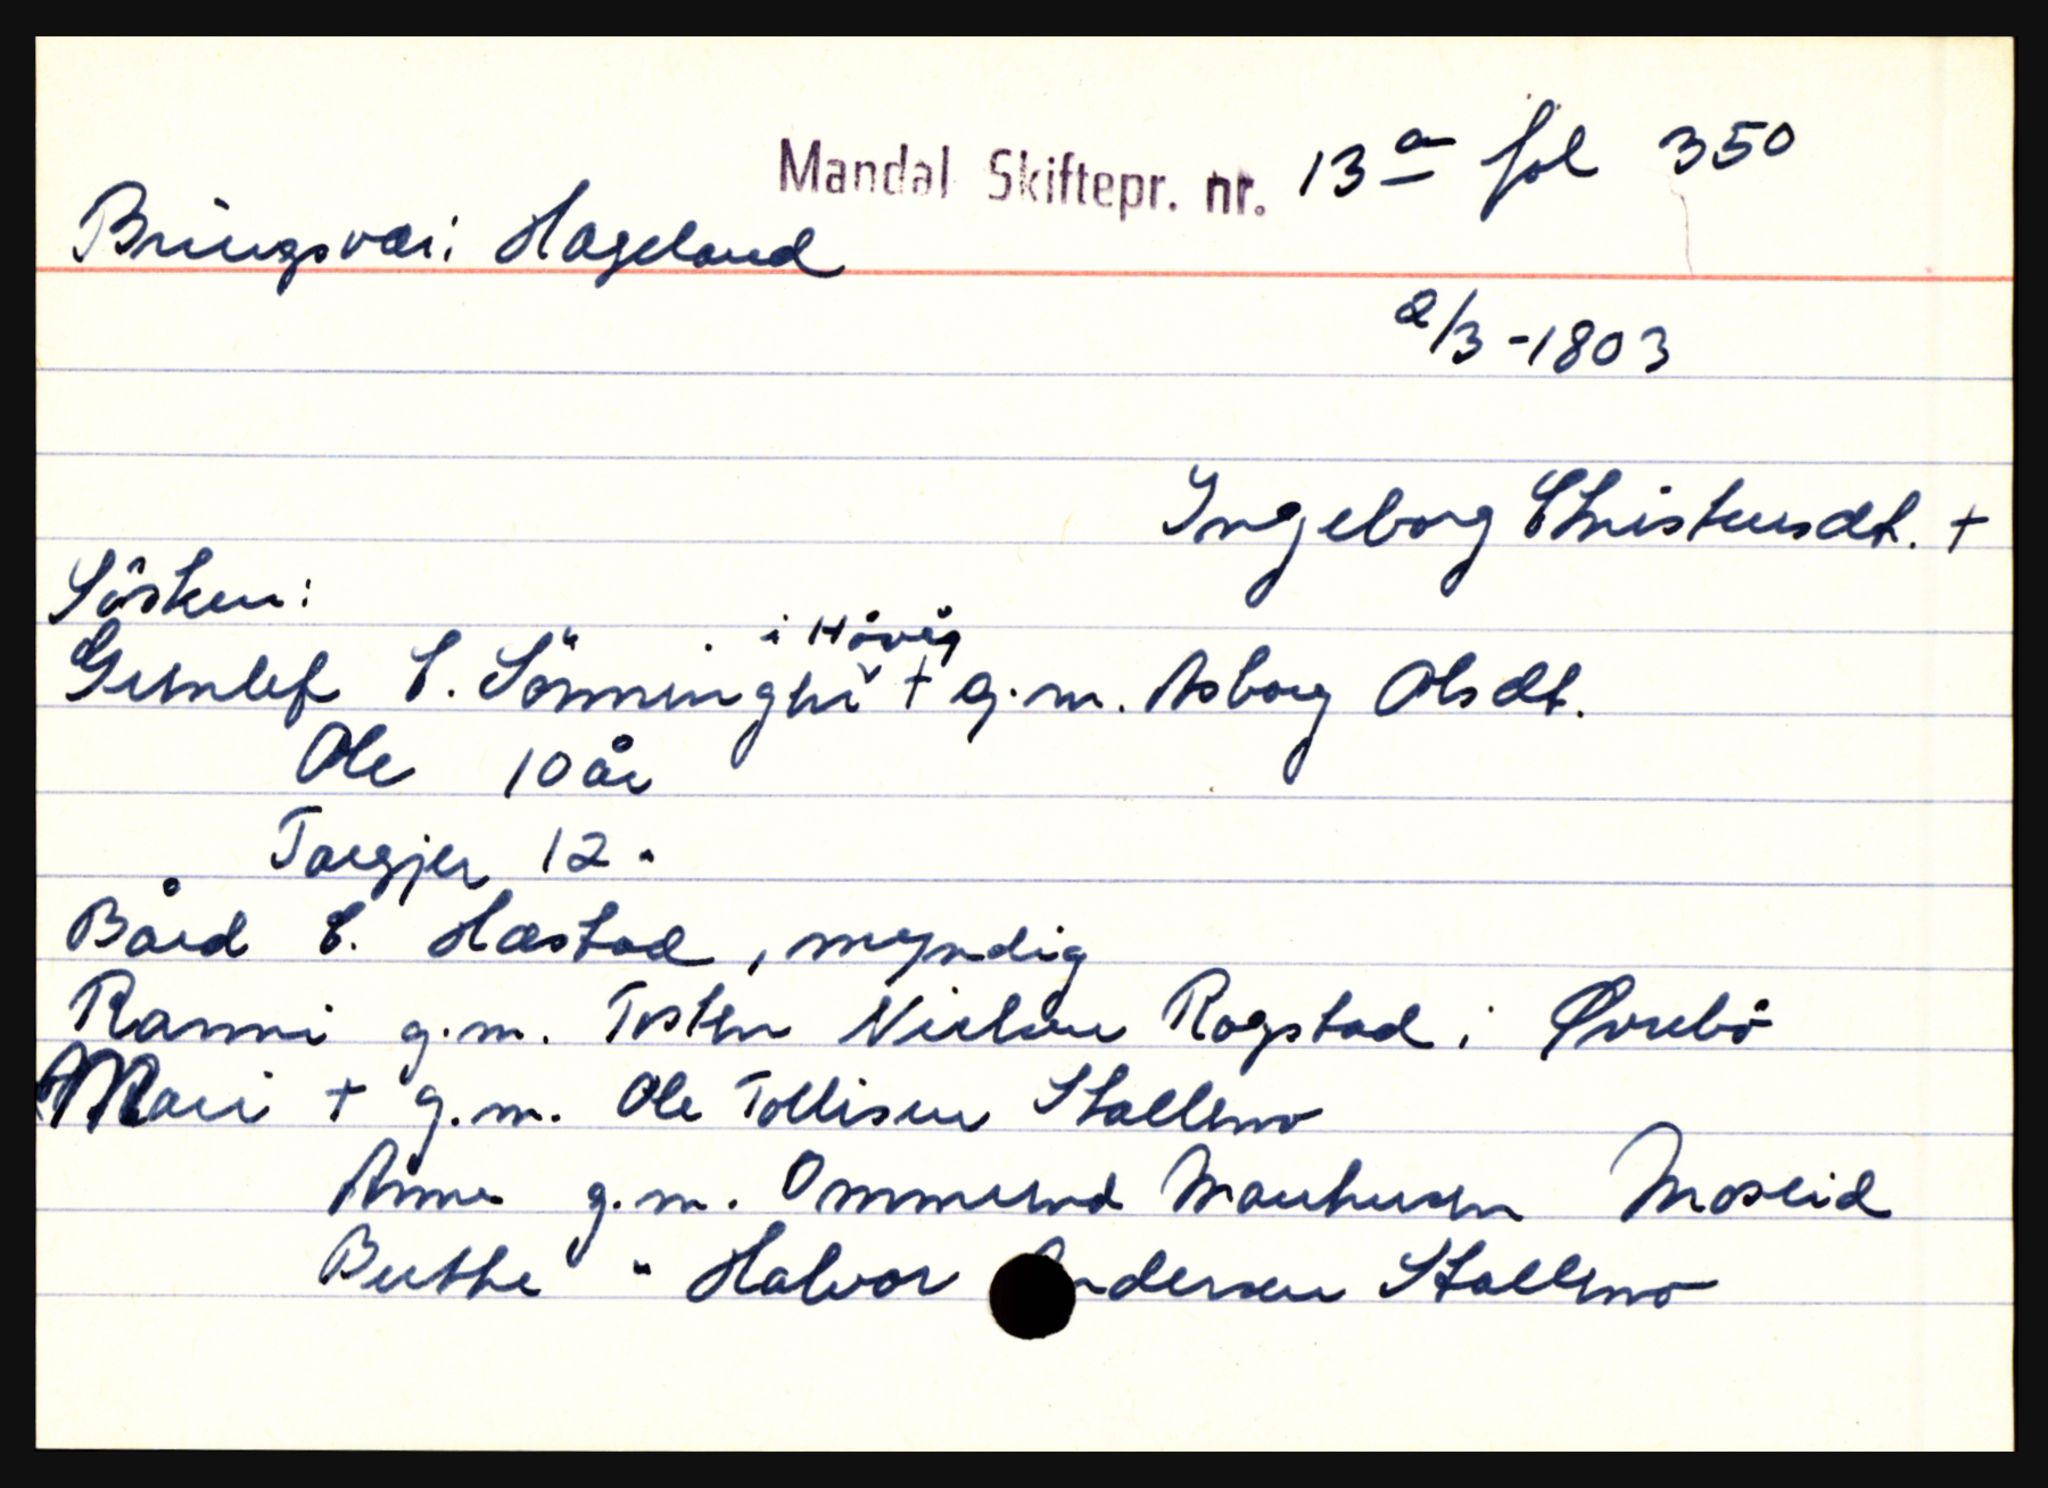 Mandal Skiftepr. nr. 13a fol 350
Bringsvær i Hægeland
2/3-1803
Ingeborg Christensdt. +
Søsken:
Gunlef C. i Høvåg + g.m. Asborg Olsdt.
Ole 10 år
Targjer 12 "
Bård C. Hæstad, myndig
Ranni g.m. Tosten Nielsen Rogstad i Øvrebø
Mari + g.m. Ole Tollisen Stallemo
Anne g.m. Ommund Moseid
Berthe " Halvor Andersen Stallemo